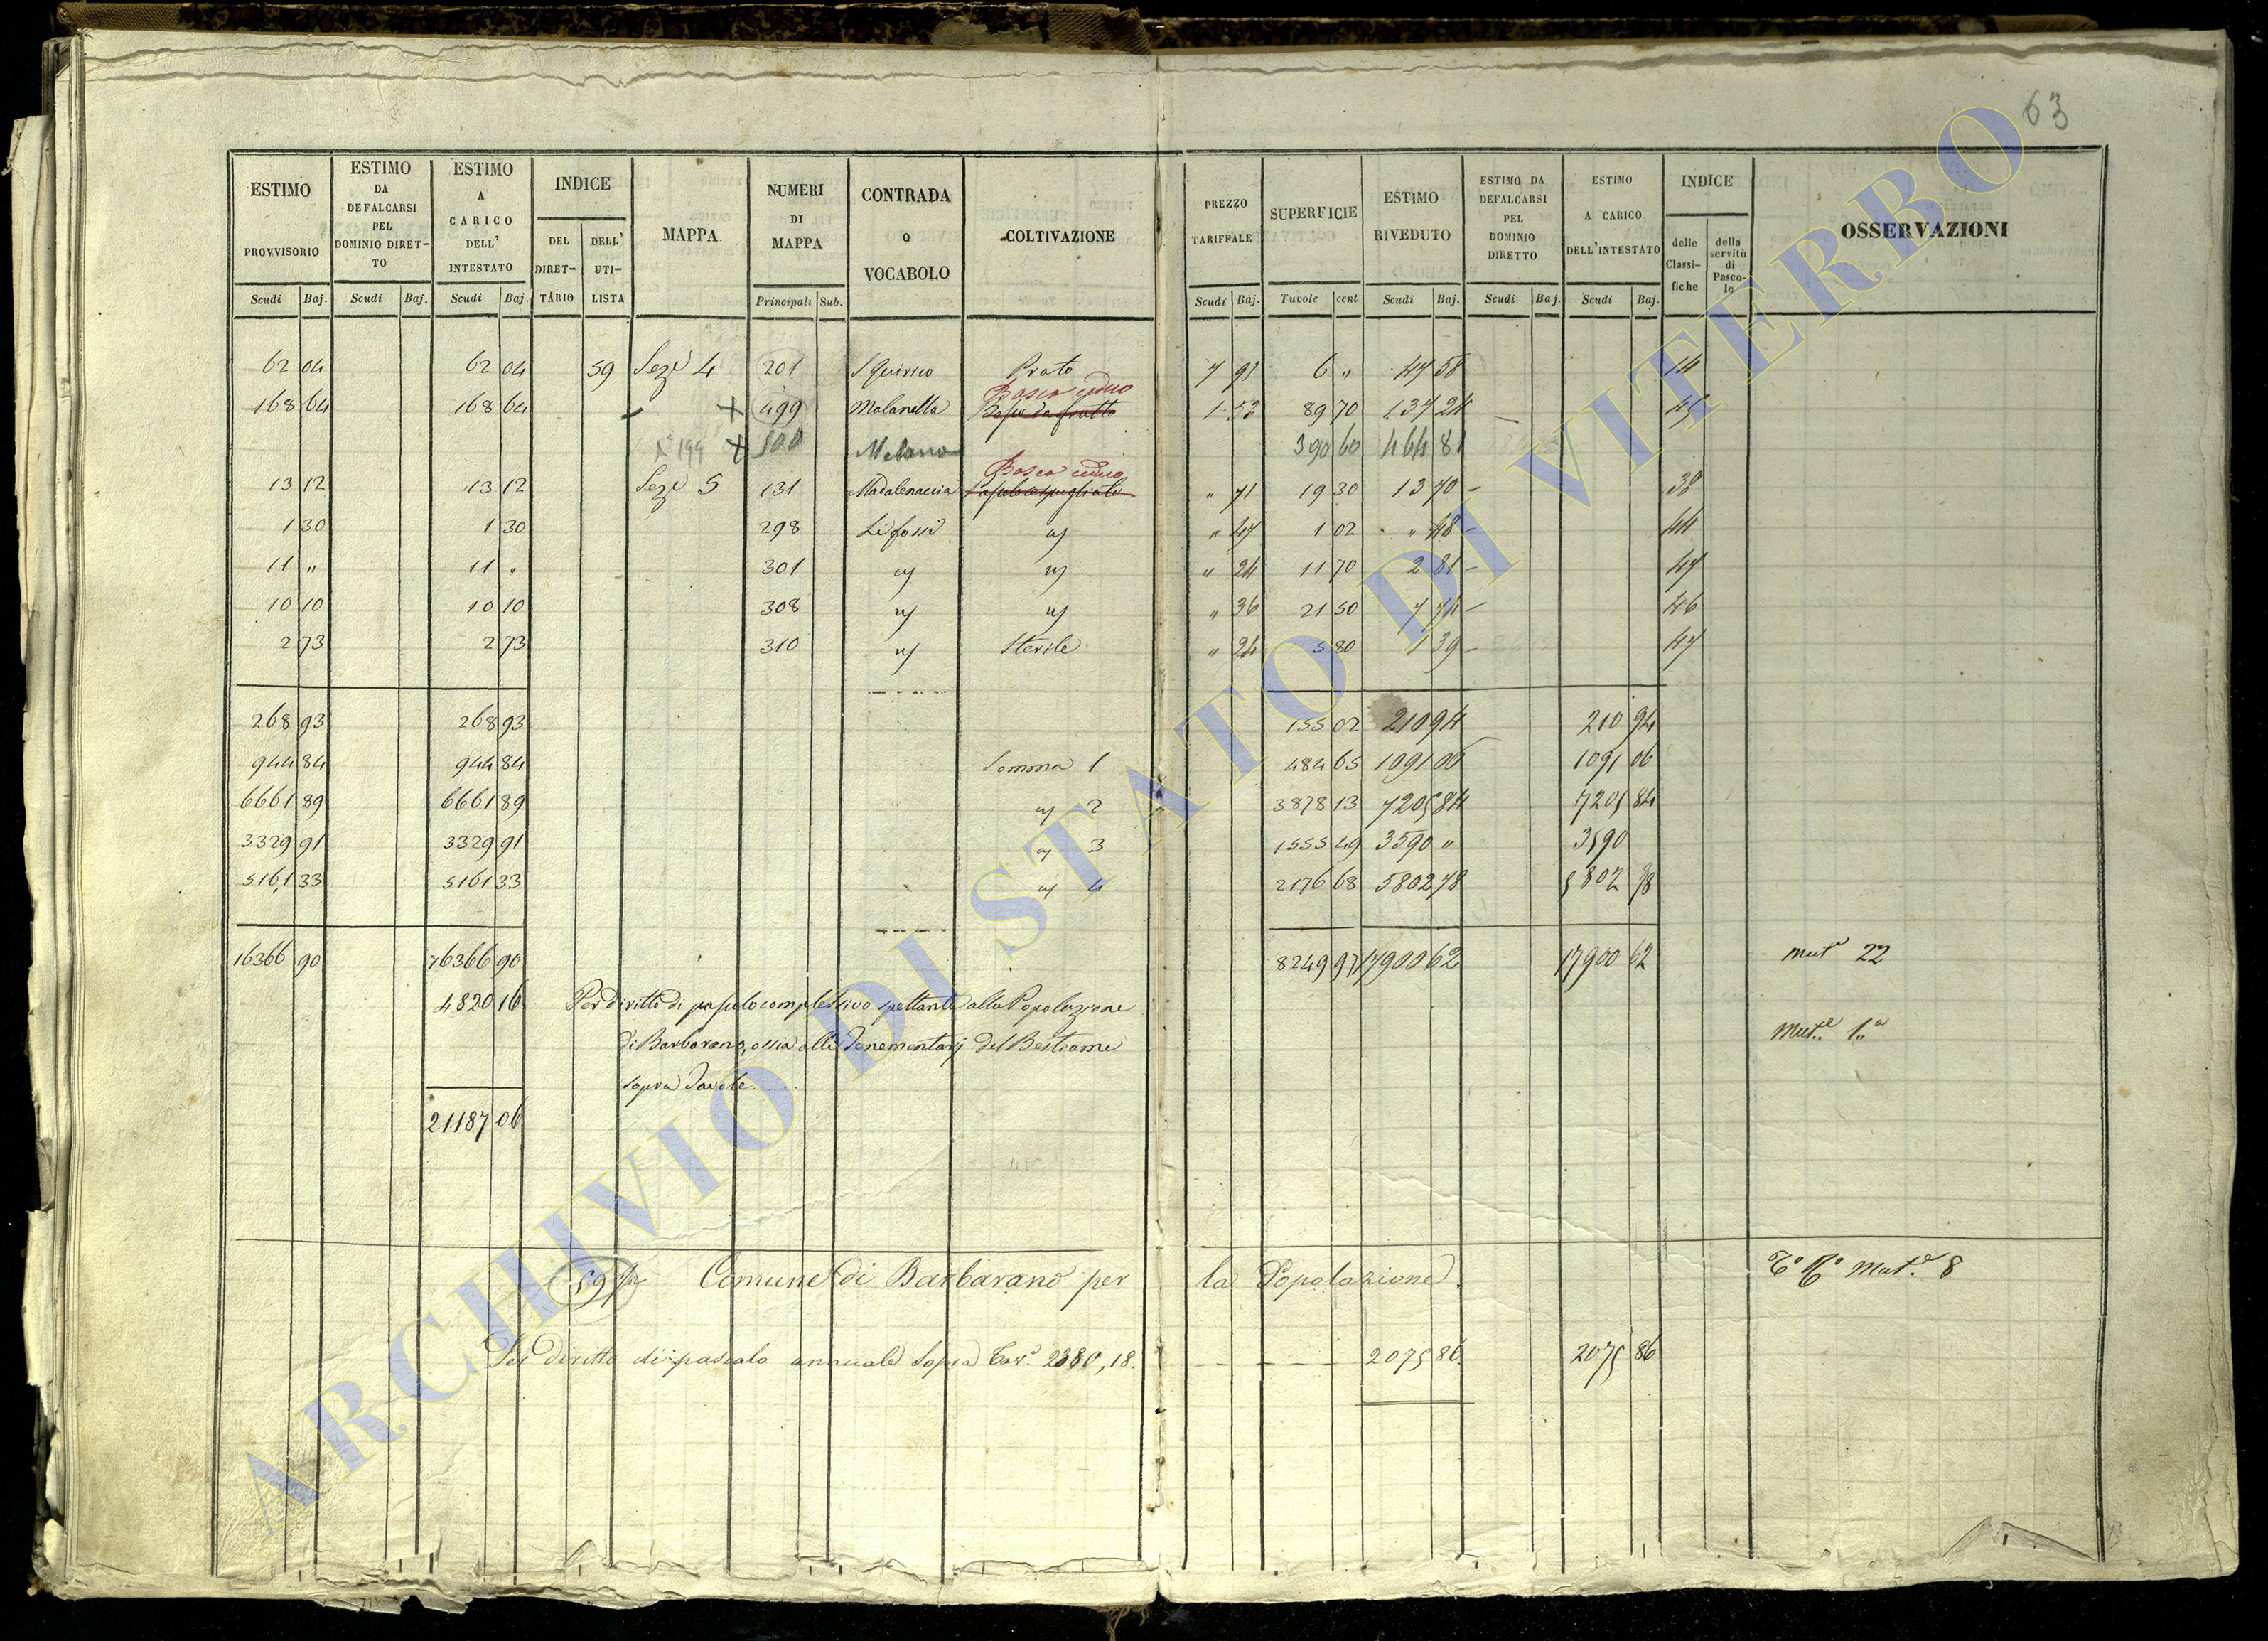 63
ESTIMO PROVVISORIO | ESTIMO DA DEFALCARSI PEL DOMINIO DIRETTO | ESTIMO A CARICO DELL' INTESTATO | INDICE | MAPPA | NUMERI DI MAPPA | CONTRADA O VOCABOLO | COLTIVAZIONE | PREZZO TARIFFALE | SUPERFICIE | ESTIMO RIVEDUTO | ESTIMO DA DEFALCARSI PEL DOMINIO DIRETTO | ESTIMO A CARICO DELL'INTESTATO | INDICE | OSSERVAZIONI
Scudi | Baj. | Scudi | Baj. | Scudi | Baj. | DEL DIRET-TARIO | DELL' UTI-LISTA | Principali | Sub. | Scudi | Baj. | Tavole | cent | Scudi | Baj. | Scudi | Baj. | Scudi | Baj. | delle Classi-fiche | della servitù di Pasco-lo
62 04 | 62 04 | 59 | Sezе 4 | 201 | S Quirico | Prato | 7 93 | 6 " | 47 58 | 14
Bosco ceduo
168 64 | 168 64 | 499 | Malanella | Bosco da frutto | 1 53 | 89 70 | 137 24 | 45
N 199 | 500 | 390 60 | 464 81
Bosco ceduo
13 12 | 13 12 | Seze 5 | 131 | Madalenaccia | Pascolo cespugliato | " 71 | 19 30 | 13 70 | 38
1 30 | 1 30 | 298 | Li fossi | " 47 | 1 02 | " 48 | 44
11 " | 11 " | 301 | " 24 | 11 70 | 2 81 | 47
10 10 | 10 10 | 308 | " 36 | 21 50 | 7 74 | 46
2 73 | 2 73 | 310 | Sterile | " 24 | 5 80 | 1 39 | 47
268 93 | 268 93 | 155 02 | 210 94 | 210 94
944 84 | 944 84 | Somma 1 | 484 65 | 1091 06 | 1091 06
6661 89 | 6661 89 | 2 | 3878 13 | 7205 84 | 7205 84
3329 91 | 3329 91 | 3 | 1555 49 | 3590 " | 3590
5161 33 | 5161 33 | 4 | 2176 68 | 5802 78 | 5802 78
16366 90 | 16366 90 | 8249 97 | 17900 62 | 17900 62 | Mute 22
4820 16 | Per diritto di pascolo complessivo spettante alla Popolazione
di Barbarano, ossia alli Tenementarj del Bestiame | Mute 1a
sopra Tavole
21187 06
59 | Comune di Barbarano per la Popolazione. | To Ro Mute 8
Per diritto di pascolo annuale sopra Tave 2380,18. | 2075 86 | 2075 86
ARCHIVIO DI STATO DI VITERBO